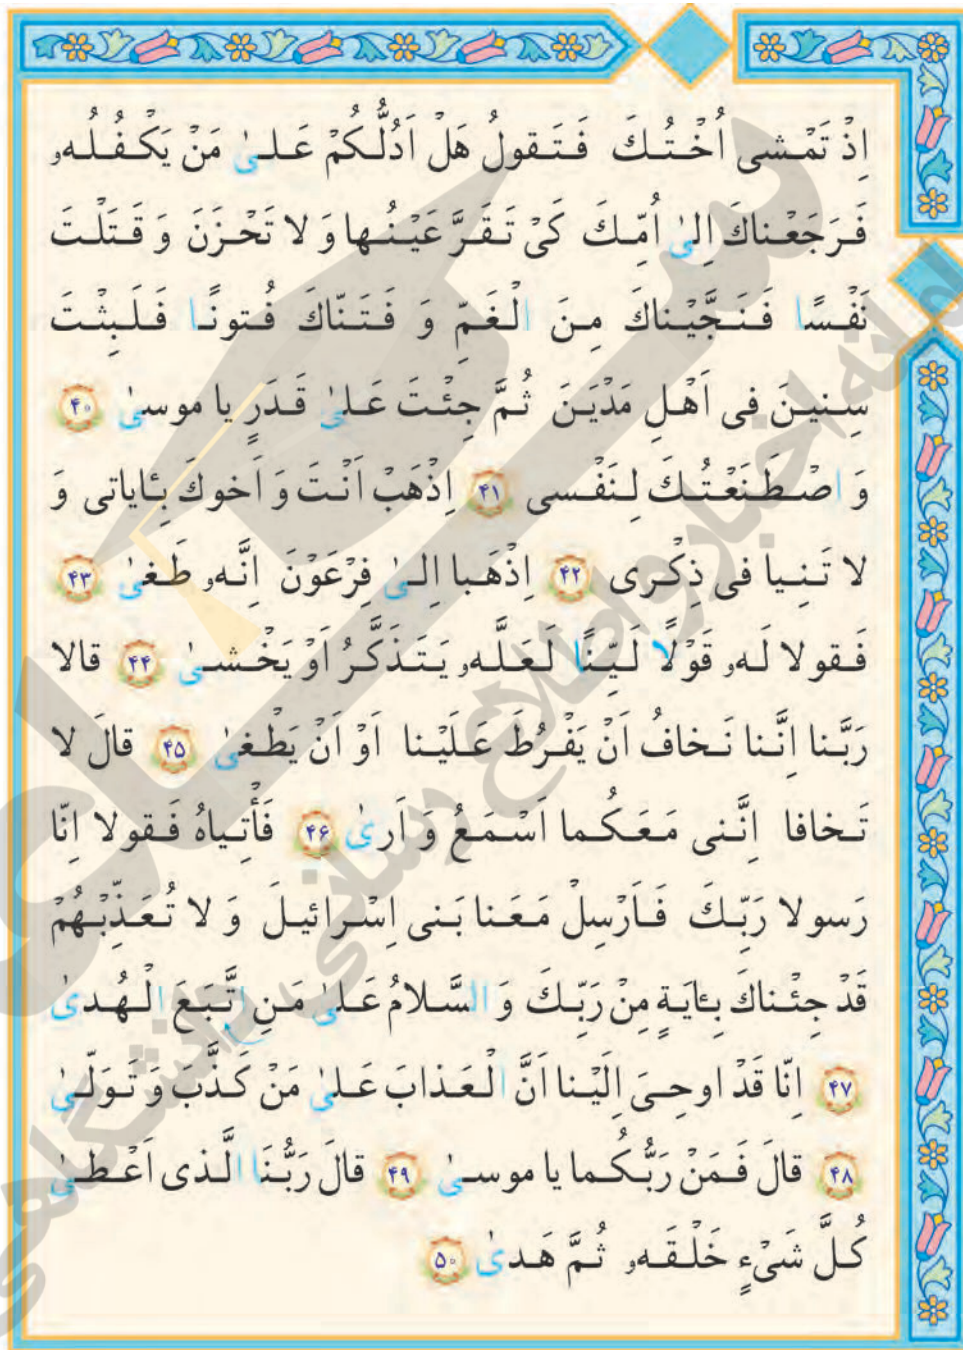 اِذْ تَمْشى اُخْتُكَ فَتَقولُ هَلْ اَدُلُّكُمْ عَلىٰ مَنْ يَكْفُلُهو
فَرَجَعْناكَ اِلىٰ اُمِّكَ كَىْ تَقَرَّ عَيْنُها وَ لا تَحْزَنَ وَ قَتَلْتَ
نَفْسًا فَنَجَّيْناكَ مِنَ الْغَمِّ وَ فَتَنّاكَ فُتونًا فَلَبِثْتَ
سِنينَ فى اَهْلِ مَدْيَنَ ثُمَّ جِئْتَ عَلىٰ قَدَرٍ يا موسىٰ ۴۰
وَ اصْطَنَعْتُكَ لِنَفْسى ۴۱ اِذْهَبْ اَنْتَ وَ اَخوكَ بِـٔاياتى وَ
لا تَنِيا فى ذِكْرى ۴۲ اِذْهَبا اِلىٰ فِرْعَوْنَ اِنَّهو طَغىٰ ۴۳
فَقولا لَهو قَوْلًا لَيِّنًا لَعَلَّهو يَتَذَكَّرُ اَوْ يَخْشىٰ ۴۴ قالا
رَبَّنا اِنَّنا نَخافُ اَنْ يَفْرُطَ عَلَيْنا اَوْ اَنْ يَطْغىٰ ۴۵ قالَ لا
تَخافا اِنَّنى مَعَكُما اَسْمَعُ وَ اَرىٰ ۴۶ فَأْتِياهُ فَقولا اِنّا
رَسولا رَبِّكَ فَاَرْسِلْ مَعَنا بَنى اِسْرائيلَ وَ لا تُعَذِّبْهُمْ
قَدْ جِئْناكَ بِـٔايَةٍ مِنْ رَبِّكَ وَ السَّلامُ عَلىٰ مَنِ اتَّبَعَ الْهُدىٰ
۴۷ اِنّا قَدْ اوحِىَ اِلَيْنا اَنَّ الْعَذابَ عَلىٰ مَنْ كَذَّبَ وَ تَوَلّىٰ
۴۸ قالَ فَمَنْ رَبُّكُما يا موسىٰ ۴۹ قالَ رَبُّنَا الَّذى اَعْطىٰ
كُلَّ شَىْءٍ خَلْقَهو ثُمَّ هَدىٰ ۵۰